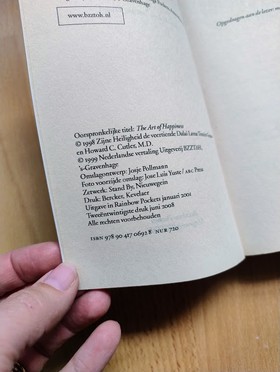 's-Gravenhage
www.bzztoh.nl
Opgedragen aan de lezer:
Oorspronkelijke titel: The Art of Happiness
© 1998 Zijne Heiligheid de veertiende Dalai Lama
en Howard C. Cutler, M.D.
© 1999 Nederlandse vertaling Uitgeverij BZZTÔH,
's-Gravenhage
Omslagontwerp: Josje Pollmann
Foto voorzijde omslag: José Luis Yuste / ABC Press
Zetwerk: Stand By, Nieuwegein
Druk: Bercker, Kevelaer
Uitgave in Rainbow Pockets januari 2001
Tweeëntwintigste druk juni 2008
Alle rechten voorbehouden
ISBN 978 90 417 0692 8 / NUR 720